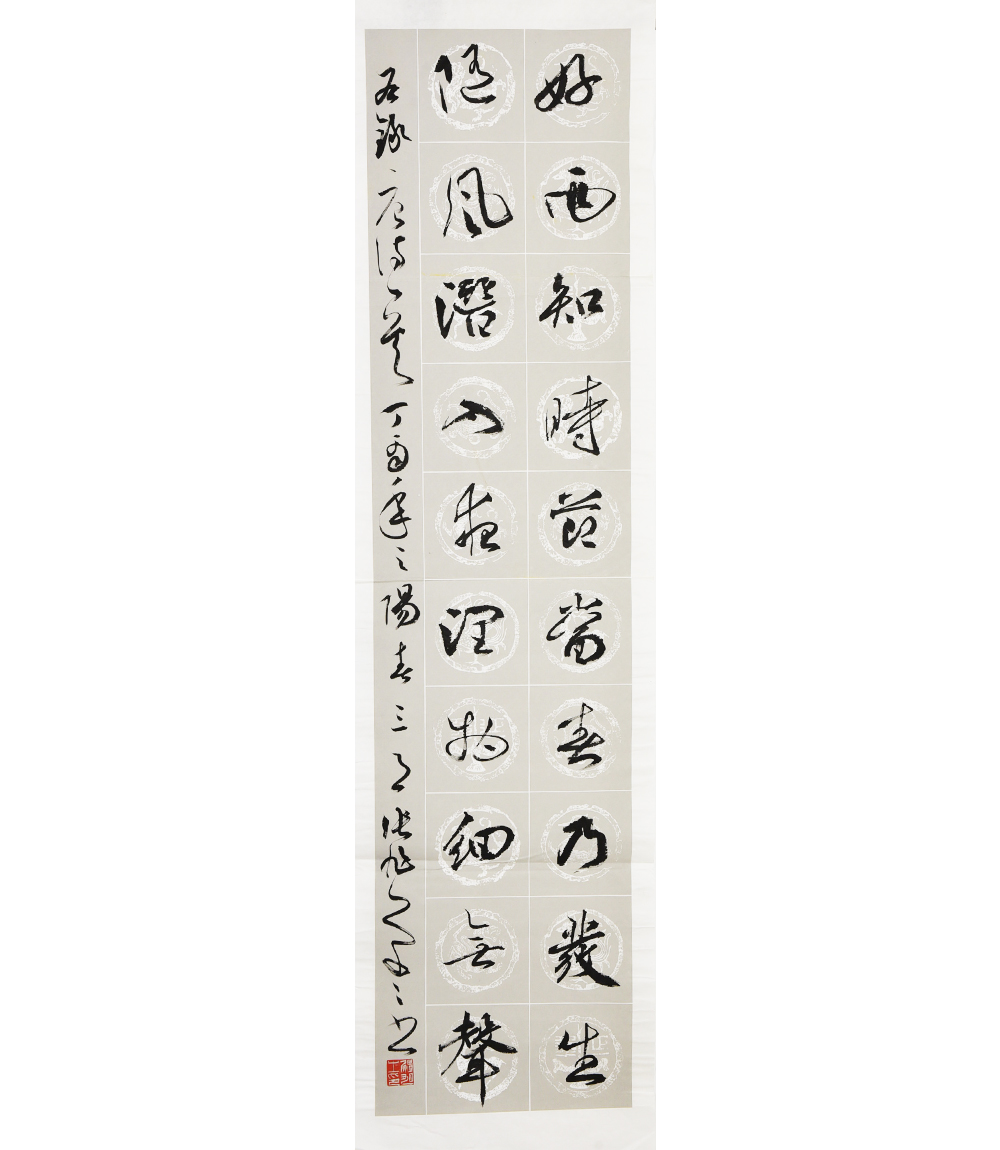 好雨知時節當春乃發生
隨風潛入夜潤物細無聲
右錄唐詩一首丁酉年之陽春三月張旭
書